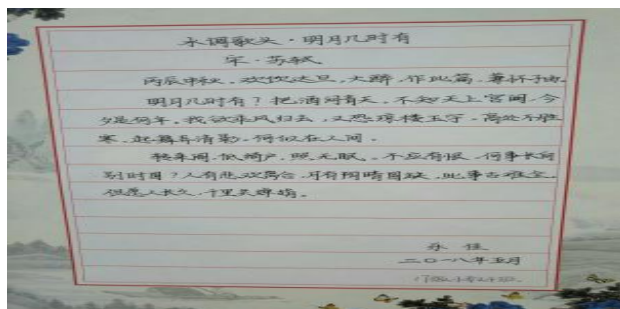 水调歌头·明月几时有
宋·苏轼
丙辰中秋，欢饮达旦，大醉，作此篇，兼怀子由。
明月几时有？把酒问青天。不知天上宫阙，今
夕是何年。我欲乘风归去，又恐琼楼玉宇，高处不胜
寒。起舞弄清影，何似在人间。
转朱阁，低绮户，照无眠。不应有恨，何事长向
别时圆？人有悲欢离合，月有阴晴圆缺，此事古难全。
但愿人长久，千里共婵娟。
二〇一八年五月